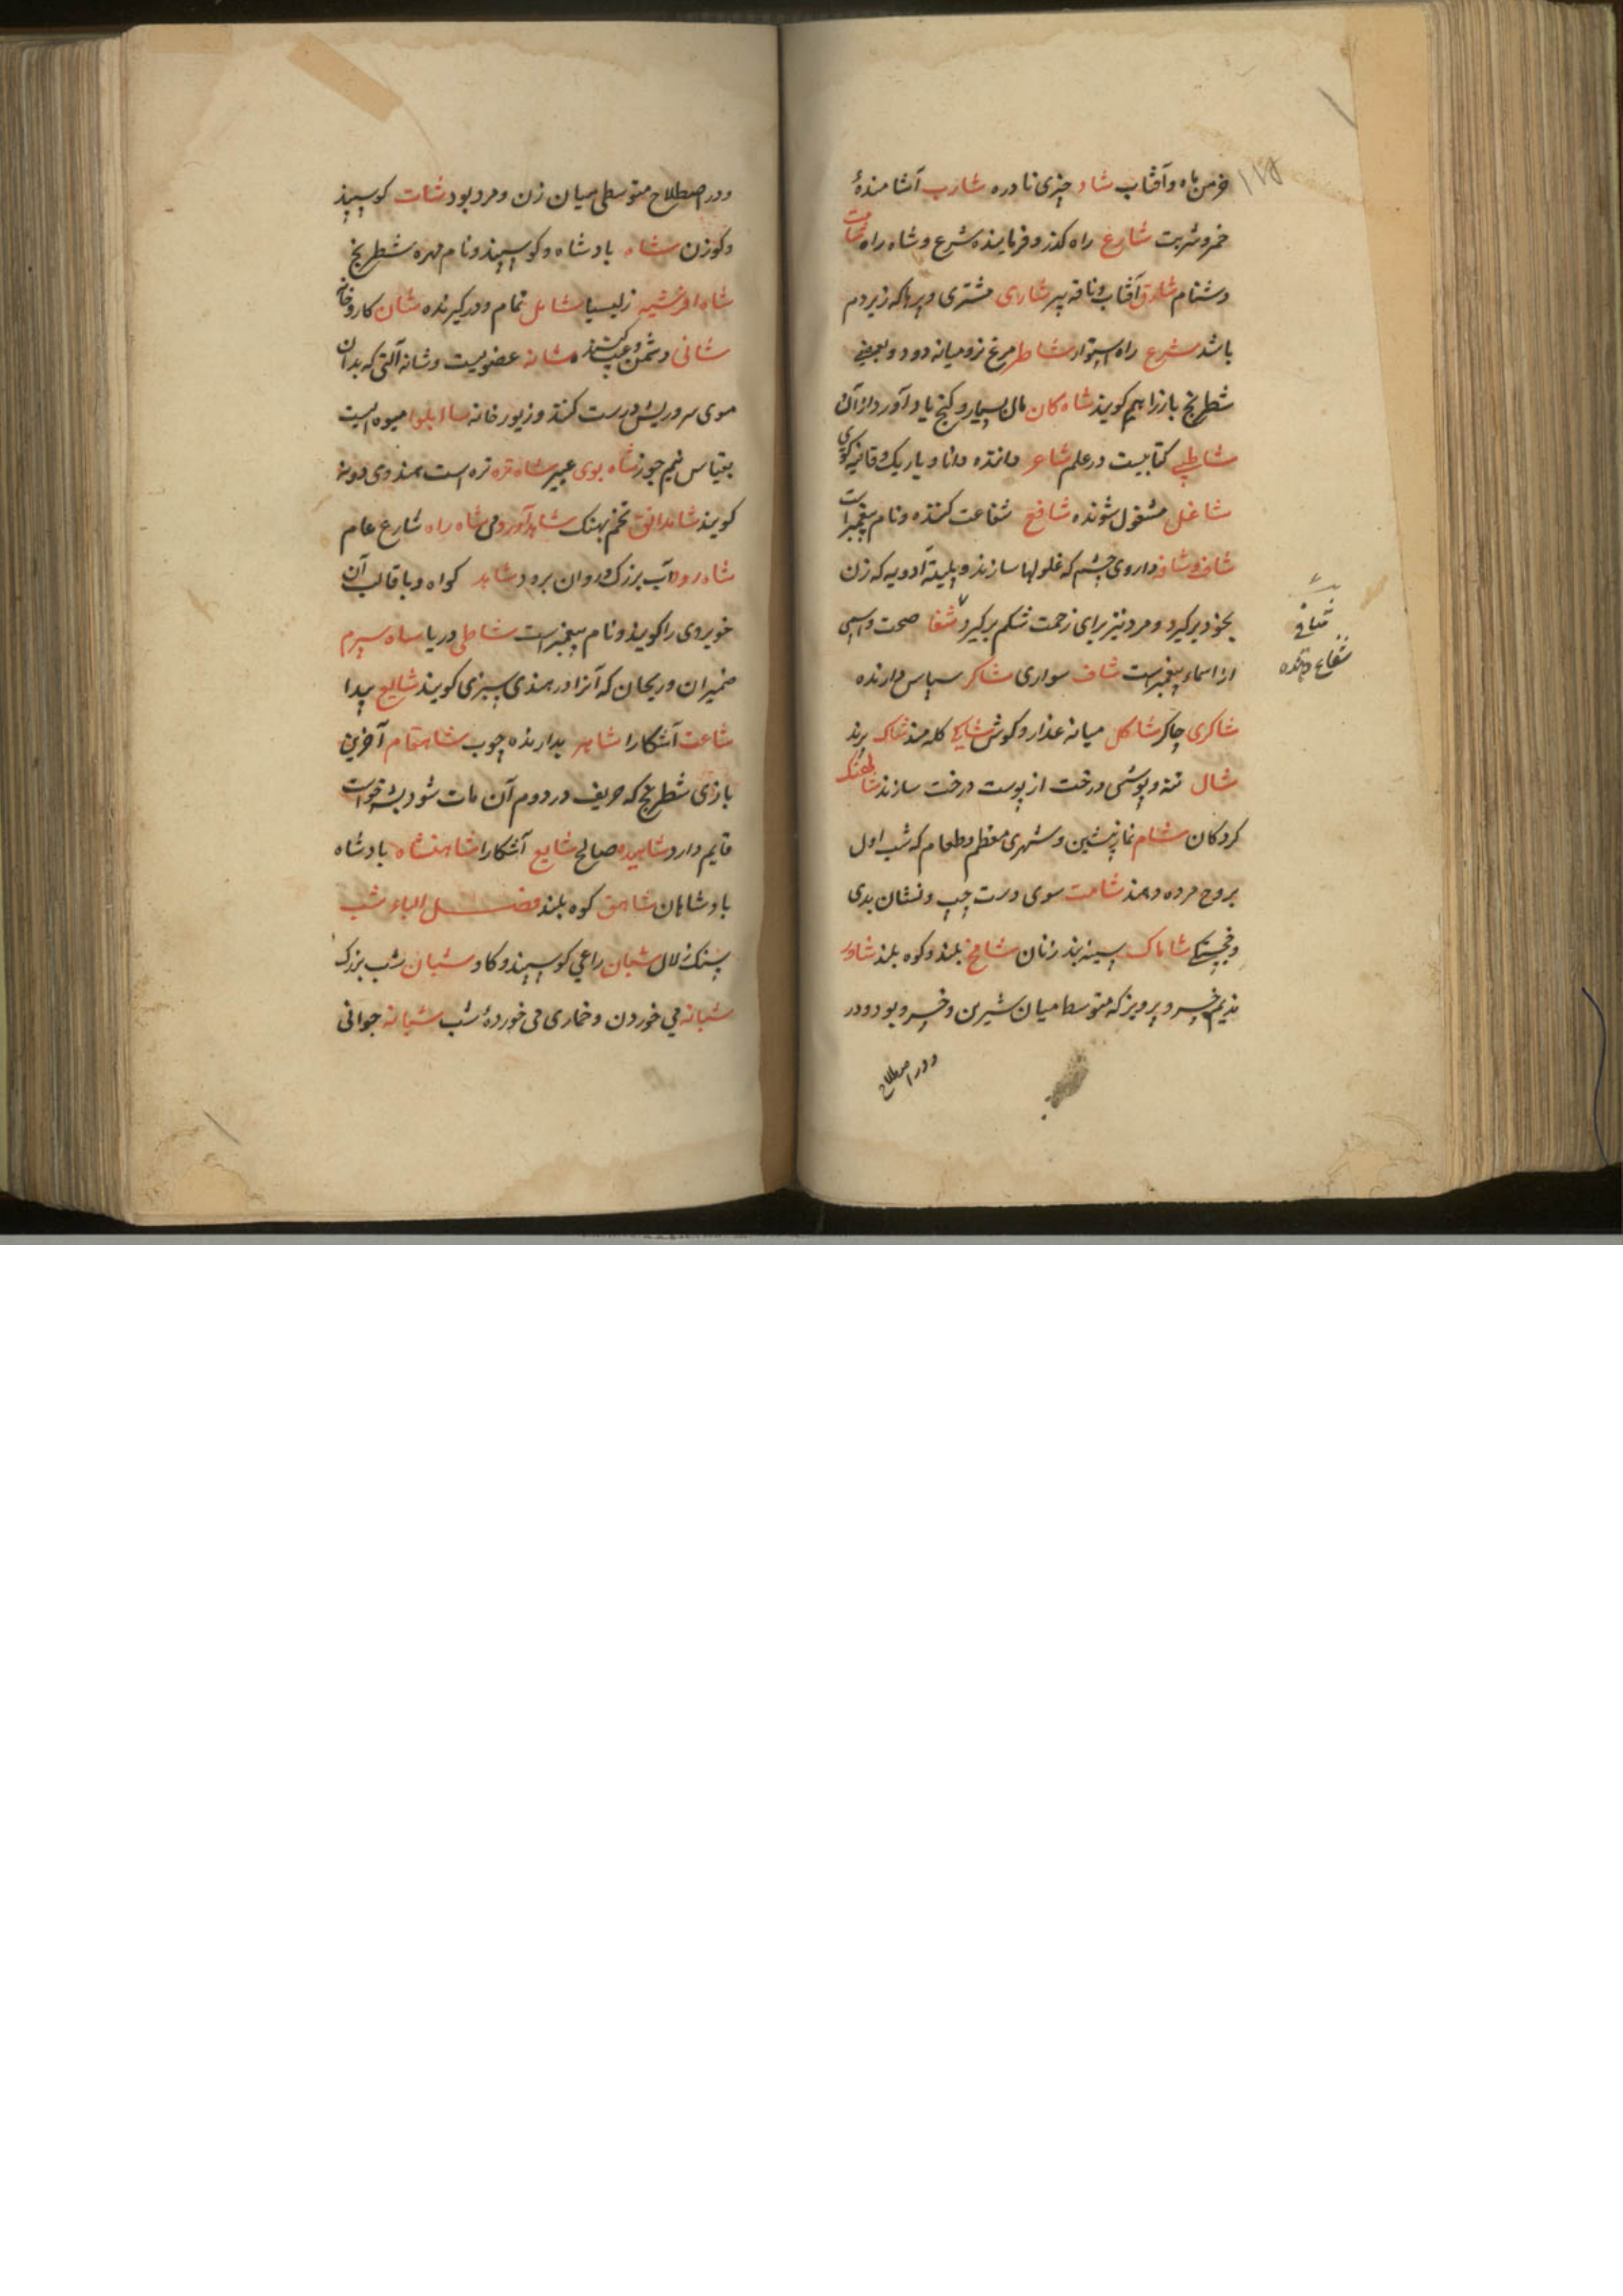 خرمن ماه و آفتاب شاد چیزی نادره شارب آشامندهٔ
خمر و شربت شارع راه کذر و فرماینده شرع و شاه راه شماتت
دشنام شارق آفتاب و ناقه پیر شاری مشتری و پرها که زیر دم
باشد شرع راه استوار شاطر مرغ نر و میانه دود و بعضی
شطرنج باز را هم کویند شاه کان مال بسیار و کنج یاد آورد از آن
شاطبی کتابیست در علم شاعر داننده دانا و باریک و قافیه کوی
شاغل مشغول شونده شافع شفاعت کننده و نام پیغمبر است
شاف و شافه داروی چشم که غلولها سازند و پلیته ادویه که زن
بخود برکیرد و مرد نیز برای زحمت شکم برکیرد شفا صحت و اسمی
از اسماء پیغمبر است شاف سواری شاکر سپاس دارنده
شاکری چاکر شاکل میانه عذار و کوش شاکی کله مند شاک برند
شال تنه و پوشش درخت از پوست درخت سازند شاهنک
کردکان شام نماز پیشین و شهری معظم و طعام که شب اول
بروح مرده دهند شامت سوی دست چپ و نشان بدی
و خجستکی شاماک سینه بند زنان شامخ بلند و کوه بلند شاور
ندیم خسرو پرویز که متوسط میان شیرین و خسرو بود و در
ودر اصطلاح
شافع
شفاعت دهنده
ودر اصطلاح متوسطی میان زن و مرد بود شات کوسپند
و کوزن شاه بادشاه و کوسپند و نام مهره شطرنج
شاه افرنشیه زلیسیا شامل تمام و درکیرنده شان کار و خانه
شانی دشمن و عیب کننده شانه عضویست و شانه آلتی که بدان
موی سر و ریش درست کنند و زیور خانه شاابلوا میوه ایست
بقیاس نیم جوز شاه بوی عبیر شاه تره تره است بهندوی دونه
کویند شاهدانق تخم بهنک شاهدآورد می شاه راه شارع عام
شاه رود آب بزرک و روان برود شاهد کواه و باقالب آن
خوبروی را کویند و نام پیغمبر است شاطی دریا شاه سپرم
ضمیران و ریحان که آنرا در هندی سبزی کویند شایع پیدا
شاعت آشکارا شاهر بدارنده چوب شاهقام آخرین
بازی شطرنج که حریف در دوم آن مات شود بشه خواست
قایم دارد شاهیده صالح شایع آشکارا شاهنشاه بادشاه
بادشاهان شاهق کوه بلند فصل الباء شب
سنک لال شبان راعی کوسپند و کاو شبان شب بزرک
شبانه می خوردن و خماری می خوردهٔ شب شبانه جوانی